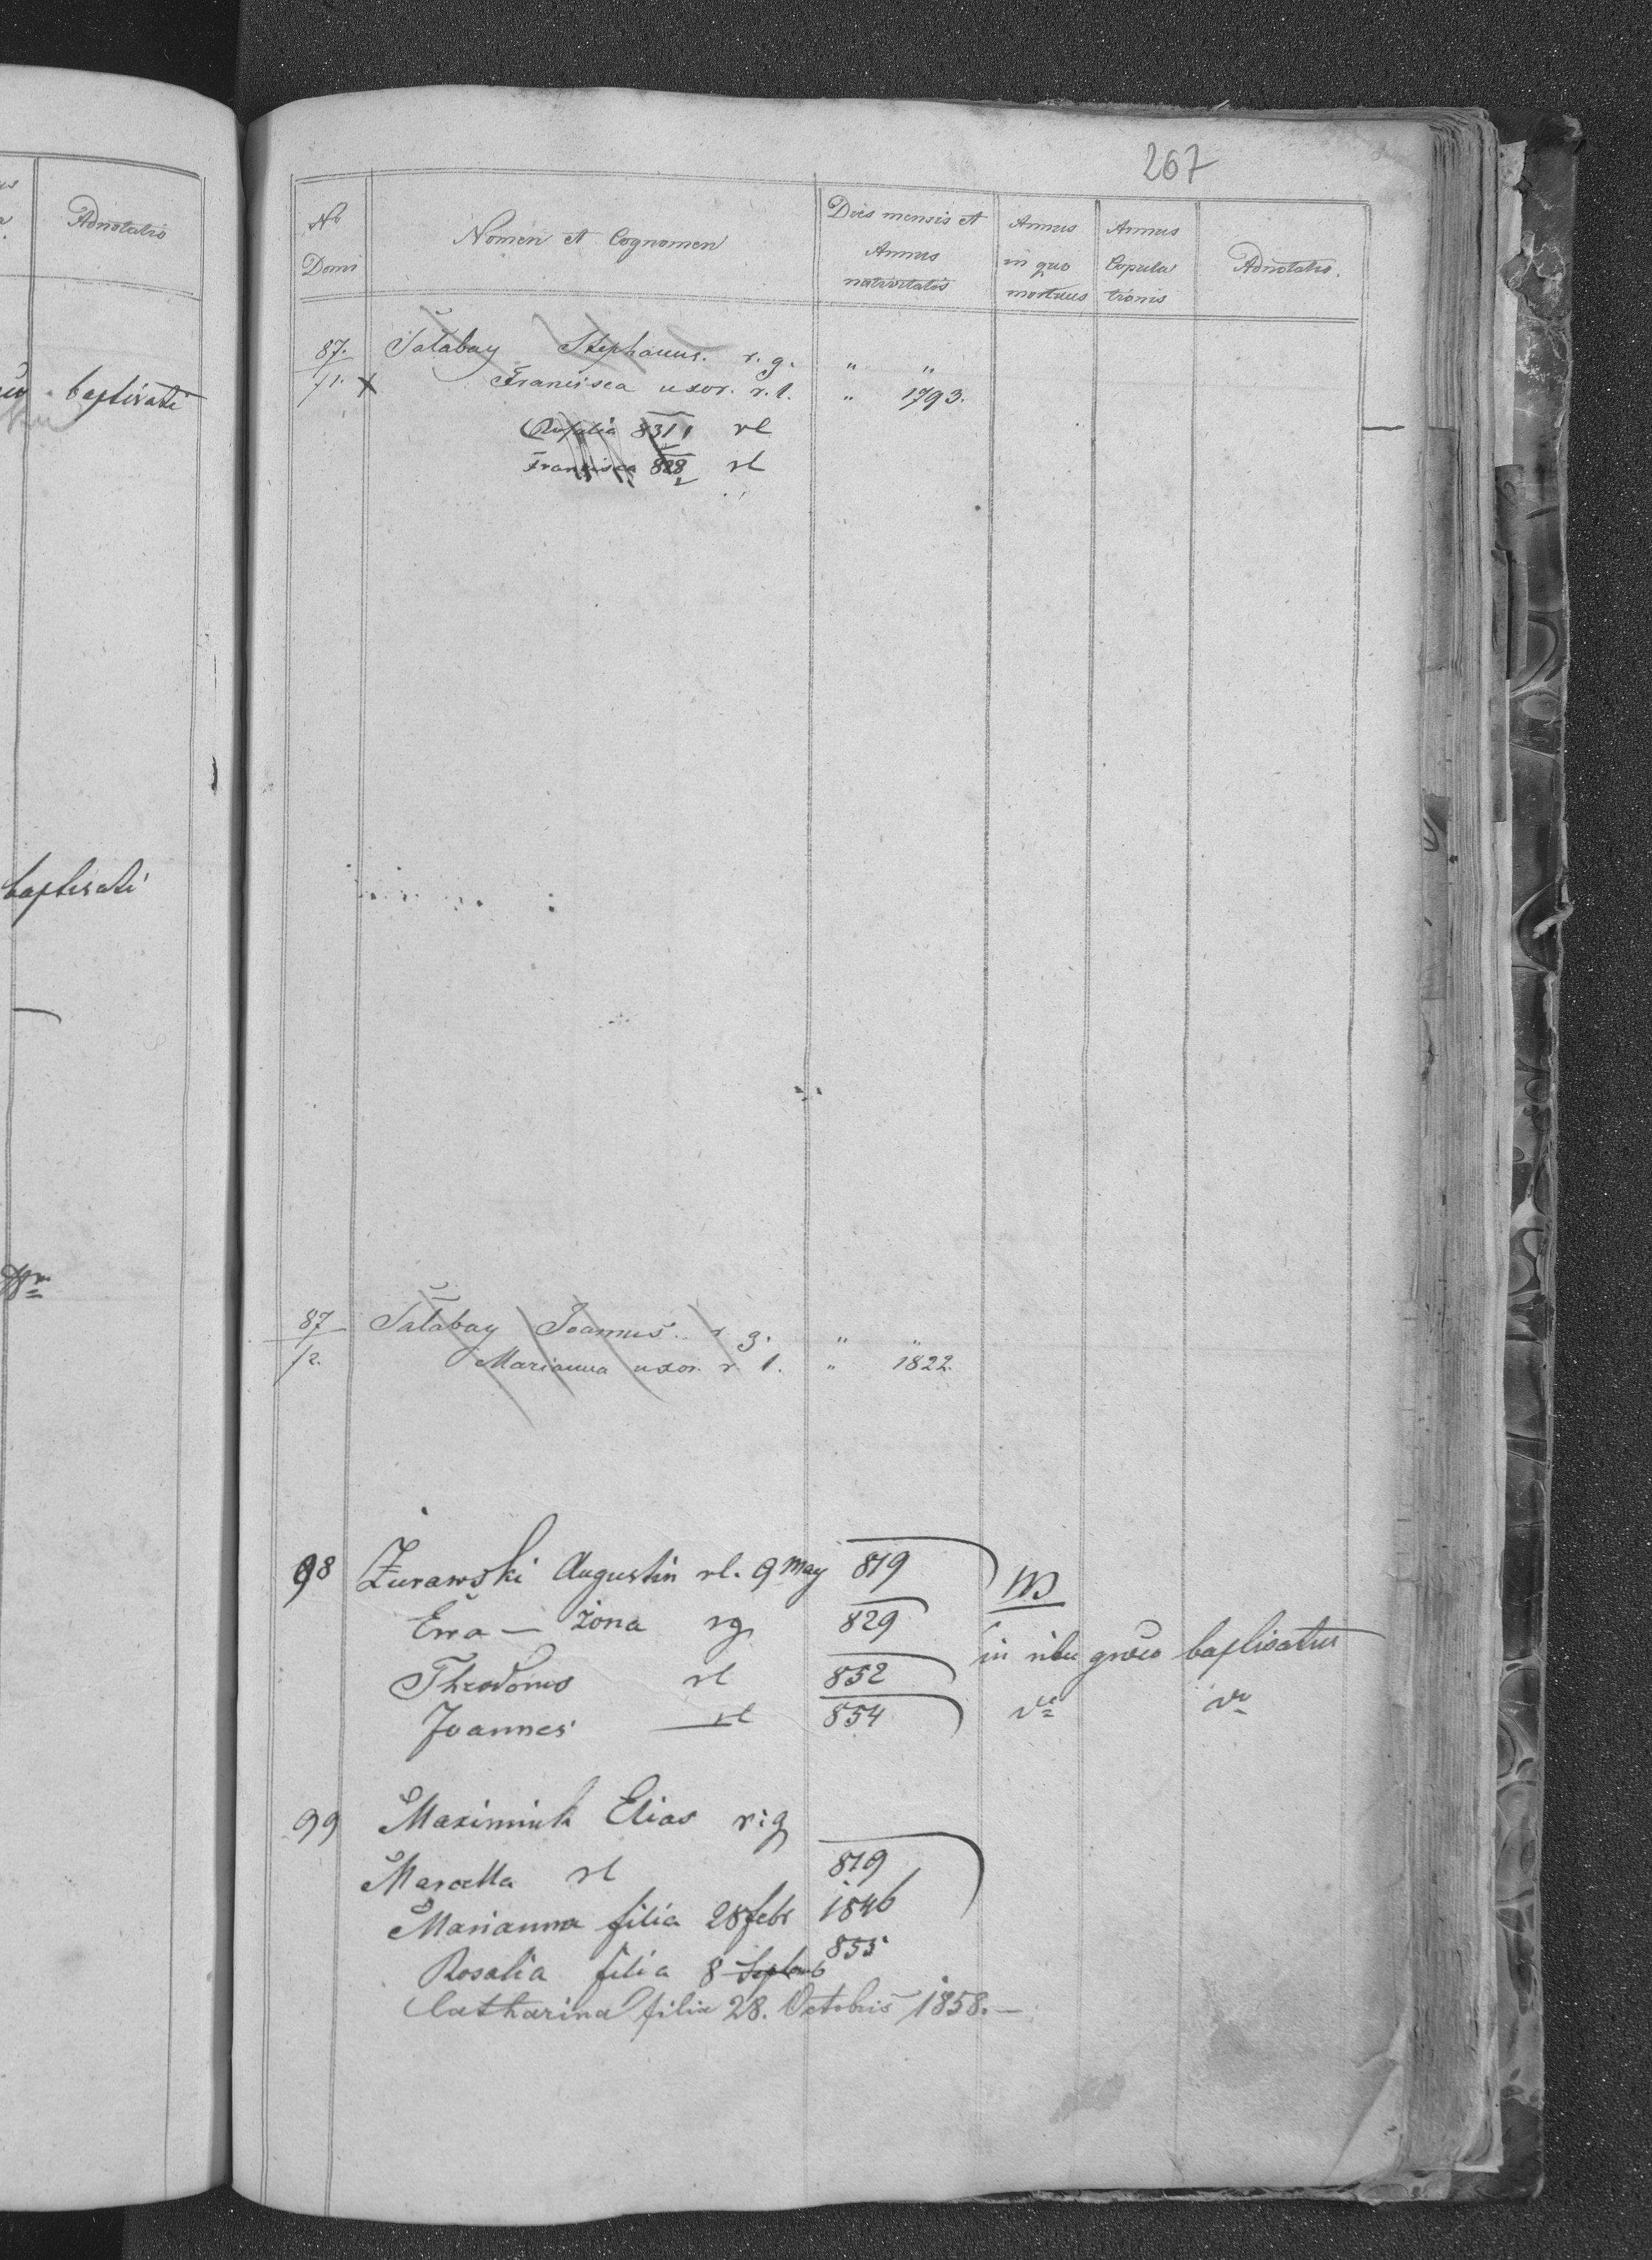 Adnotatio
baptisati
baptisati
267
No Domi
Nomen et Cognomen
Dies mensis et Annus nativitatis
Annus in quo mortuus
Annus Copulationis
Adnotatio.
87. Sałabay Stephanus. r. g. " "
/1. x Francisca uxor. r. l. " 1793.
Rosalia 831 rl
Francisca 828 rl
87 Sałabay Joannus. r g. " "
/2. Marianna uxor. r. l. " 1822.
98 Żurawski Augustin rl. 9 May 819
Ewa — żona rg 829
Theodorus rl 852 in ritu graeco baptisatus
Joannes rl 854 do do
99 Maximiuk Elias r: g
Marcella rl 819
Marianna filia 28 febr 1846
Rosalia filia 8 Septemb 855
Catharina filia 28. Octobris 1858. —